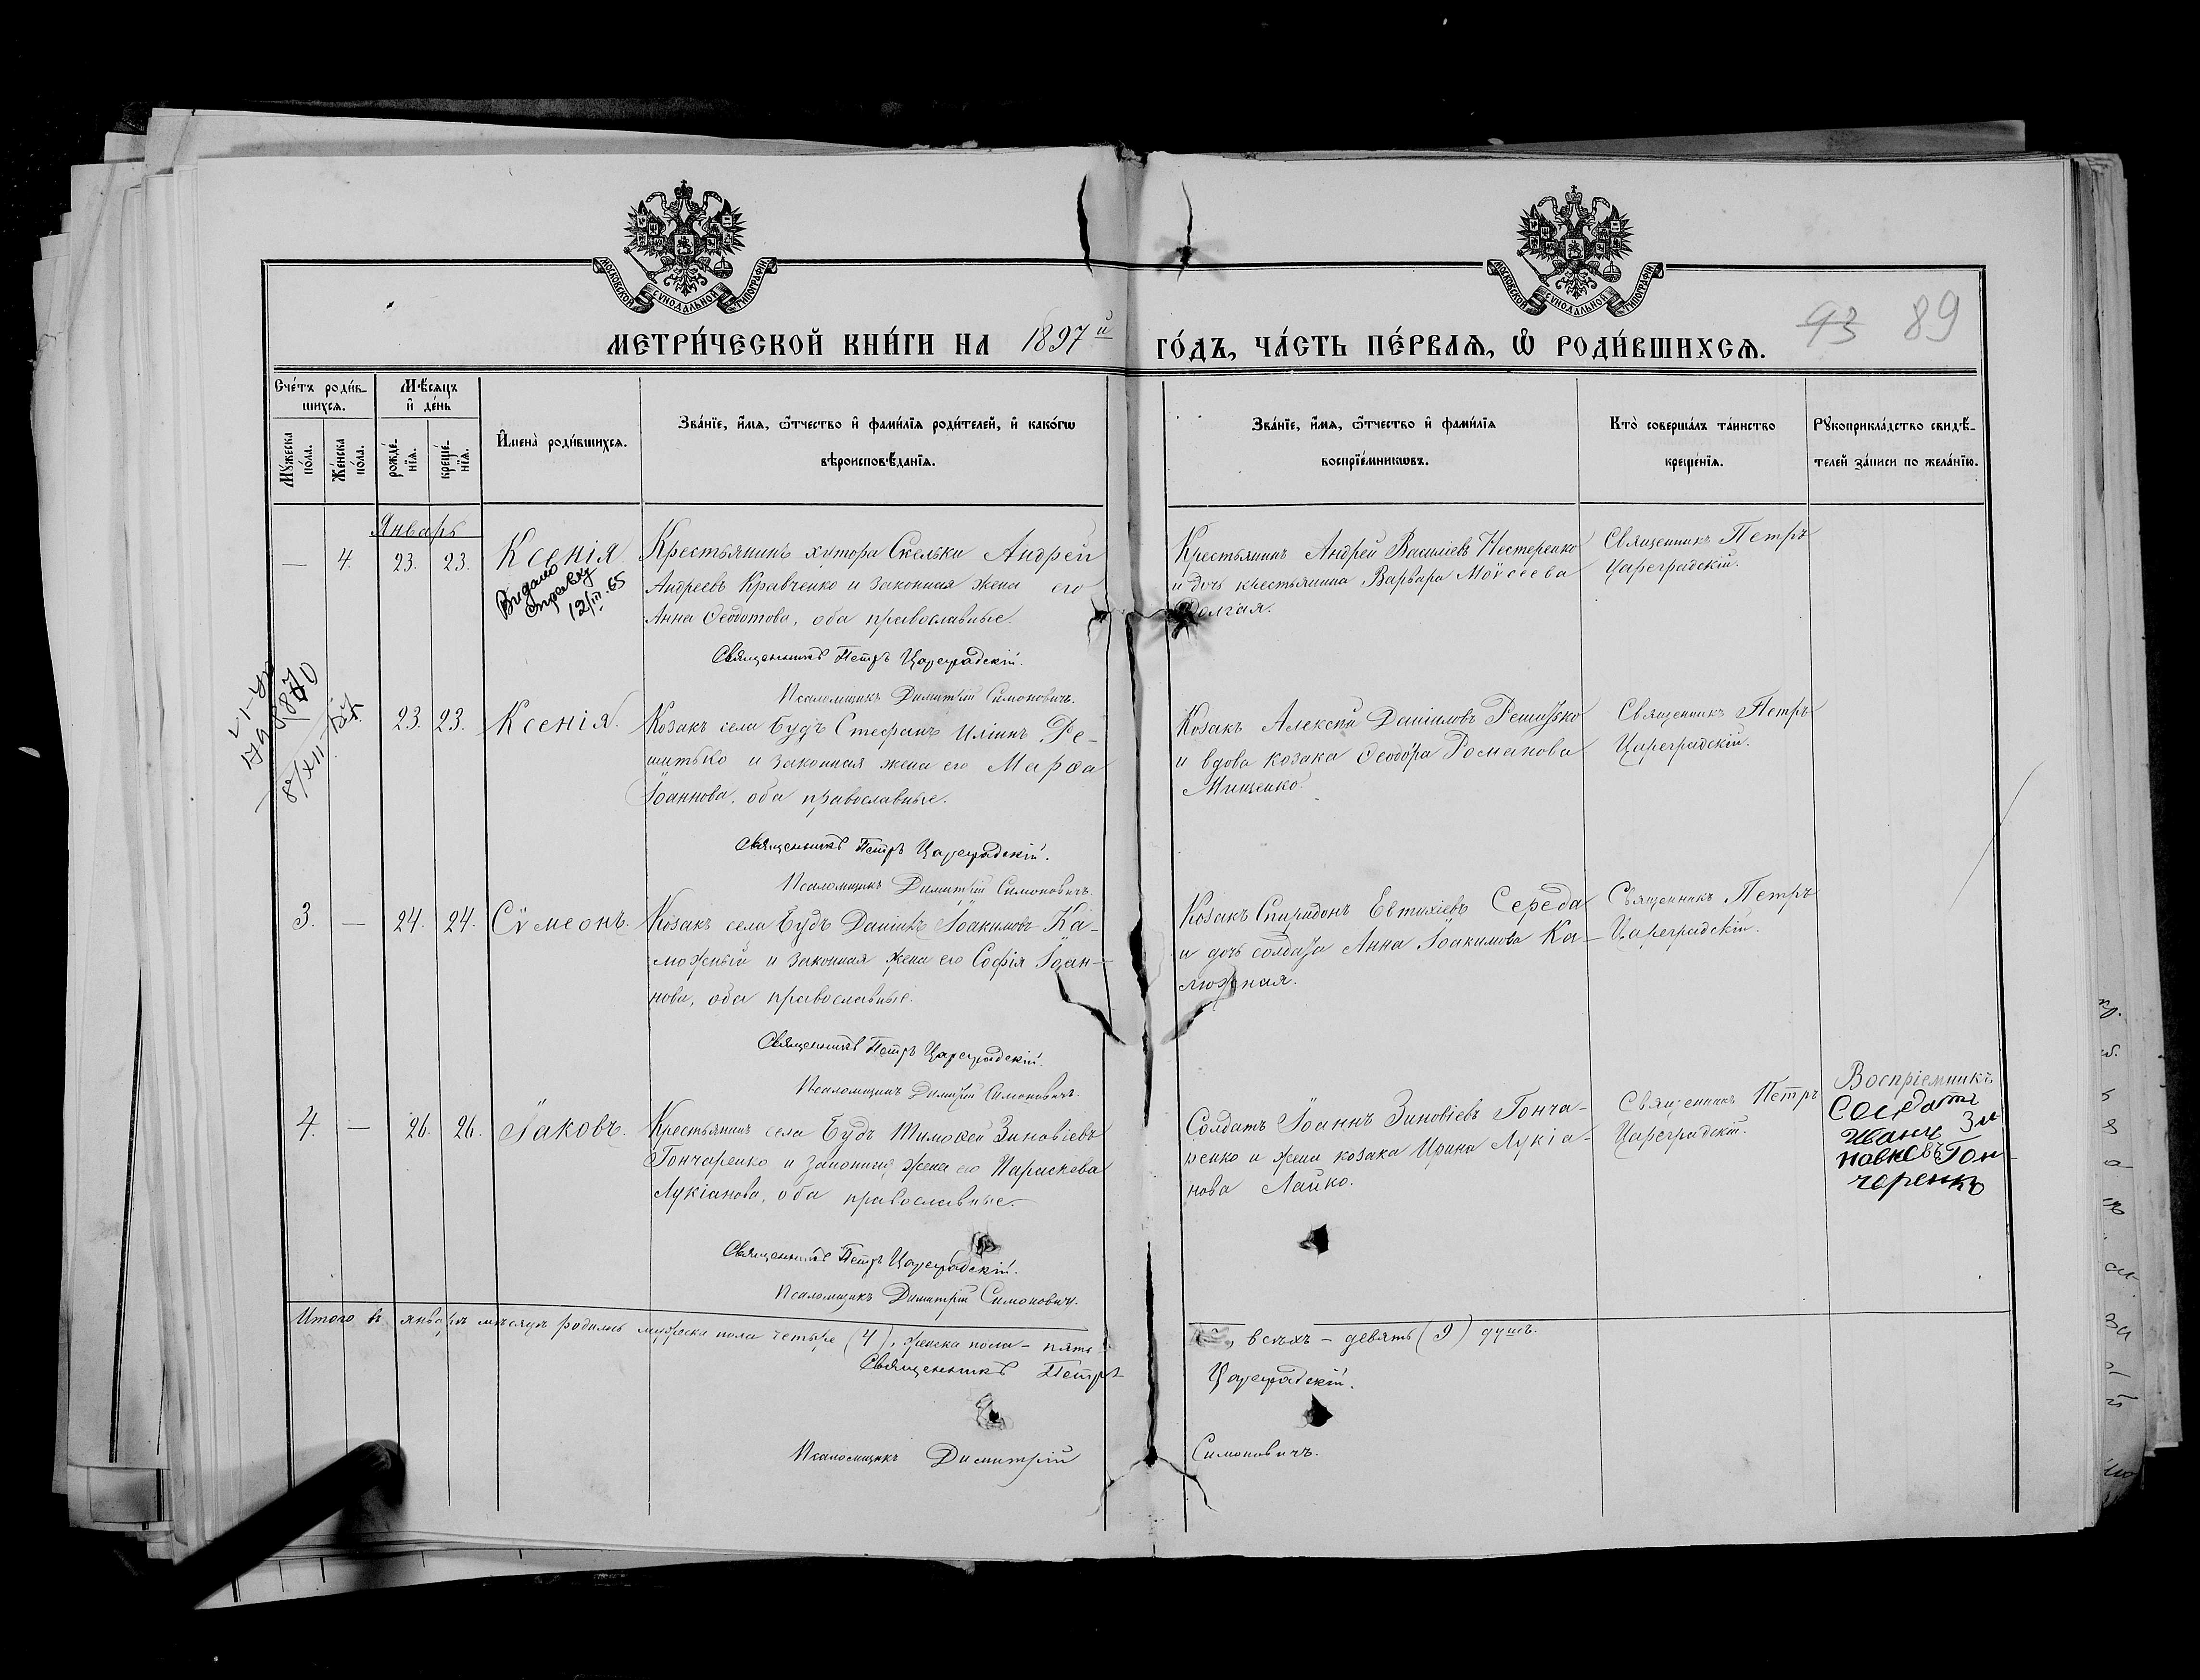 МОСКОВСКОЙ СѴНОДАЛЬНОЙ ТИПОГРАФІИ
МОСКОВСКОЙ СѴНОДАЛЬНОЙ ТИПОГРАФІИ
МЕТРИ́ЧЕСКОЙ КНИ́ГИ НА 1897й ГО́ДЪ, ЧА́СТЬ ПЕ́РВАЯ, Ѡ РОДИ́ВШИХСЯ.
93 89
Сче́тъ роди́в-
шихся.
Мѣ́сяцъ
и҆ де́нь
Мꙋ́жеска
по́ла.
Же́нска
по́ла.
рожде́-
нїѧ.
креще́-
нїѧ.
И҆мена̀ роди́вшихсѧ.
Зва́нїе, и҆́мѧ, ѻ҆́тчество и҆ фами́лїѧ роди́телей, и҆ како́гѡ
вѣроисповѣ́данїѧ.
Зва́нїе, и҆́мѧ, ѻ҆́тчество и҆ фами́лїѧ
воспрїе́мникѡвъ.
Кто̀ соверша́лъ та́инство
креще́нїѧ.
Рꙋкоприкла́дство свидѣ́-
телей за́писи по жела́нїю.
Январь
— 4. 23. 23. Ксенія
Видано
справку
12/III.65
Крестьянинъ хутора Скельки Андрей
Андреевъ Кравченко и законная жена его
Анна Ѳеодотова, оба православные.
Священникъ Петръ Цареградскій.
Псаломщикъ Димитрій Симоновичъ.
Крестьянинъ Андрей Василіевъ Нестеренко
и дочь крестьянина Варвара Моѵсеева
Долгая.
Священникъ Петръ
Цареградскій.
23. 23. Ксенія.
Козакъ села Будъ Стефанъ Иліинъ Ре-
шитько и законная жена его Марѳа
Іоаннова, оба православные.
Священникъ Петръ Цареградскій.
Псаломщикъ Димитрій Симоновичъ.
Козакъ Алексій Даніиловъ Решитько
и вдова козака Ѳеодора Романова
Мищенко.
Священникъ Петръ
Цареградскій.
3. — 24. 24. Сѵмеонъ.
Козакъ села Будъ Даніилъ Іоакимовъ Ка-
можный и законная жена его Софія Іоан-
нова, оба православные.
Священникъ Петръ Цареградскій.
Псаломщикъ Димитрій Симоновичъ.
Козакъ Спиридонъ Евтихіевъ Середа
и дочь солдата Анна Іоакимова Ка-
можная.
Священникъ Петръ
Цареградскій.
4. — 26. 26. Іаковъ.
Крестьянинъ села Будъ Тимоѳей Зиновіевъ
Гончаренко и законная жена его Параскева
Лукіанова, оба православные.
Священникъ Петръ Цареградскій.
Псаломщикъ Димитрій Симоновичъ.
Солдатъ Іоаннъ Зиновіевъ Гонча-
ренко и жена козака Ирина Лукіа-
нова Лайко.
Священникъ Петръ
Цареградскій.
Воспріемникъ
Солдатъ
Иванъ Зи
Гон
черенко
Итого въ январѣ мѣсяцѣ родилось мужеска пола четыре (4), женска пола — пять
всѣхъ — девять (9) душъ.
Священникъ Петръ Цареградскій.
Псаломщикъ Димитрій Симоновичъ.